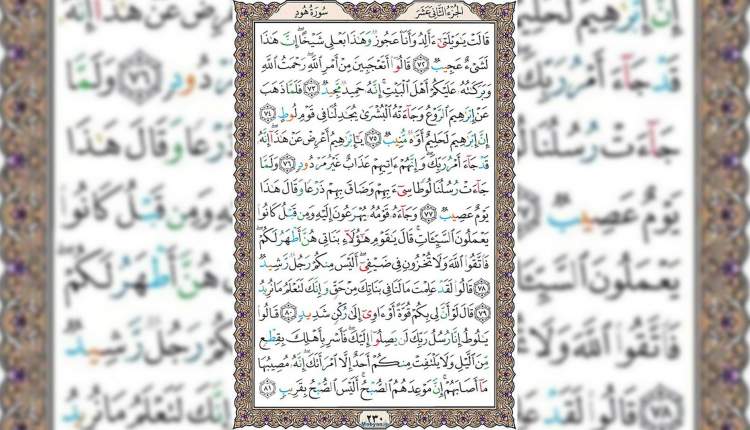 الجزء الثاني عشر
سورة هود
قَالَتْ يَٰوَيْلَتَىٰٓ ءَأَلِدُ وَأَنَا۠ عَجُوزٌ وَهَٰذَا بَعْلِى شَيْخًا ۖ إِنَّ هَٰذَا
لَشَىْءٌ عَجِيبٌ ۝٧٢ قَالُوٓا۟ أَتَعْجَبِينَ مِنْ أَمْرِ ٱللَّهِ ۖ رَحْمَتُ ٱللَّهِ
وَبَرَكَٰتُهُۥ عَلَيْكُمْ أَهْلَ ٱلْبَيْتِ ۚ إِنَّهُۥ حَمِيدٌ مَّجِيدٌ ۝٧٣ فَلَمَّا ذَهَبَ
عَنْ إِبْرَٰهِيمَ ٱلرَّوْعُ وَجَآءَتْهُ ٱلْبُشْرَىٰ يُجَٰدِلُنَا فِى قَوْمِ لُوطٍ ۝٧٤
إِنَّ إِبْرَٰهِيمَ لَحَلِيمٌ أَوَّٰهٌ مُّنِيبٌ ۝٧٥ يَٰٓإِبْرَٰهِيمُ أَعْرِضْ عَنْ هَٰذَآ ۖ إِنَّهُۥ
قَدْ جَآءَ أَمْرُ رَبِّكَ ۖ وَإِنَّهُمْ ءَاتِيهِمْ عَذَابٌ غَيْرُ مَرْدُودٍ ۝٧٦ وَلَمَّا
جَآءَتْ رُسُلُنَا لُوطًا سِىٓءَ بِهِمْ وَضَاقَ بِهِمْ ذَرْعًا وَقَالَ هَٰذَا
يَوْمٌ عَصِيبٌ ۝٧٧ وَجَآءَهُۥ قَوْمُهُۥ يُهْرَعُونَ إِلَيْهِ وَمِن قَبْلُ كَانُوا۟
يَعْمَلُونَ ٱلسَّيِّـَٔاتِ ۚ قَالَ يَٰقَوْمِ هَٰٓؤُلَآءِ بَنَاتِى هُنَّ أَطْهَرُ لَكُمْ ۖ
فَٱتَّقُوا۟ ٱللَّهَ وَلَا تُخْزُونِ فِى ضَيْفِىٓ ۖ أَلَيْسَ مِنكُمْ رَجُلٌ رَّشِيدٌ
۝٧٨ قَالُوا۟ لَقَدْ عَلِمْتَ مَا لَنَا فِى بَنَاتِكَ مِنْ حَقٍّ وَإِنَّكَ لَتَعْلَمُ مَا نُرِيدُ
۝٧٩ قَالَ لَوْ أَنَّ لِى بِكُمْ قُوَّةً أَوْ ءَاوِىٓ إِلَىٰ رُكْنٍ شَدِيدٍ ۝٨٠ قَالُوا۟
يَٰلُوطُ إِنَّا رُسُلُ رَبِّكَ لَن يَصِلُوٓا۟ إِلَيْكَ ۖ فَأَسْرِ بِأَهْلِكَ بِقِطْعٍ
مِّنَ ٱلَّيْلِ وَلَا يَلْتَفِتْ مِنكُمْ أَحَدٌ إِلَّا ٱمْرَأَتَكَ ۖ إِنَّهُۥ مُصِيبُهَا
مَآ أَصَابَهُمْ ۚ إِنَّ مَوْعِدَهُمُ ٱلصُّبْحُ ۚ أَلَيْسَ ٱلصُّبْحُ بِقَرِيبٍ ۝٨١
٢٣٠